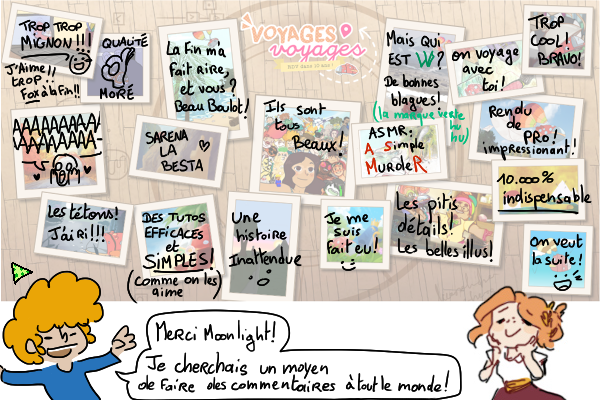 TROP TROP
MIGNON!!!
J'Aime!!
trop..
Fox à la fin!!
QUALITÉ
MORÉ
La Fin m'a
fait rire,
et vous?
Beau Boulot!
VOYAGES
voyages
Mais Qui
EST W?
De bonnes
blagues!
(la marque verte
hu
hu)
on voyage
avec
toi!
TROP
COOL!
BRAVO!
AAAAAAAAA
AAAAAAAAA
SARENA
LA
BESTA
Ils sont
tous
Beaux!
ASMR:
A Simple
MurdeR
Rendu
de
PRO!
impressionant!
10.000%
indispensable
Les tétons!
J'ai ri!!!
DES TUTOS
EFFICACES
et
SIMPLES!
(comme on les
aime)
Une
histoire
Inattendue
Je me
suis
fait eu!
Les pitis
détails!
Les belles illus!
On veut
la suite!
Merci Moonlight!
Je cherchais un moyen
de faire des commentaires à tout le monde!